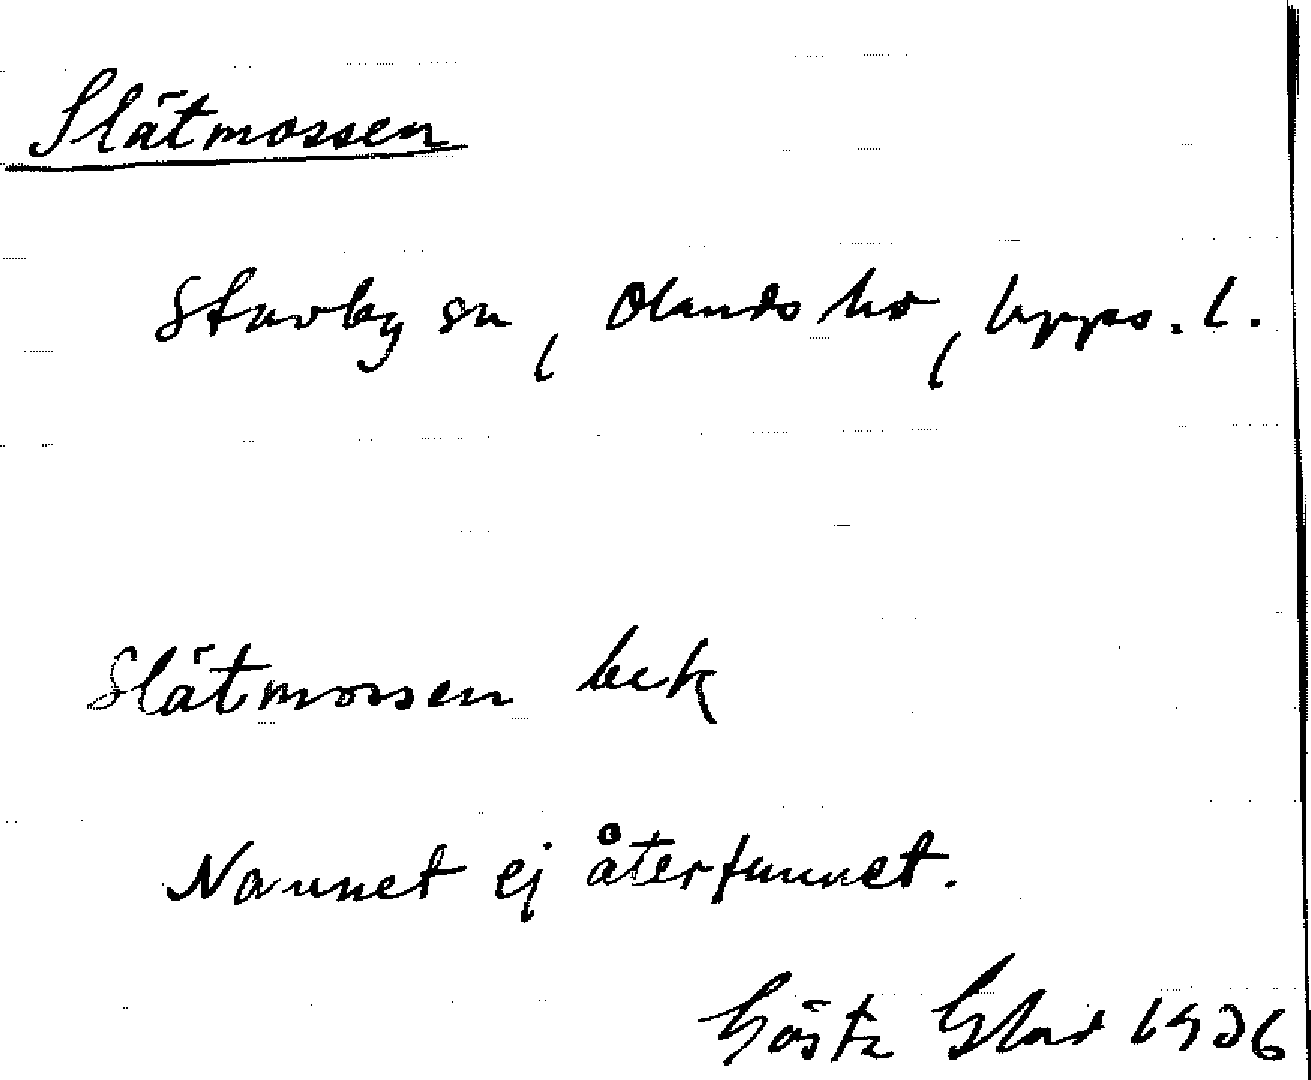 Slätmossen
Stavby sn, Olands hd, Upps. l.
Slätmossen bek
Namnet ej återfunnet.
Gösta Glad 1936